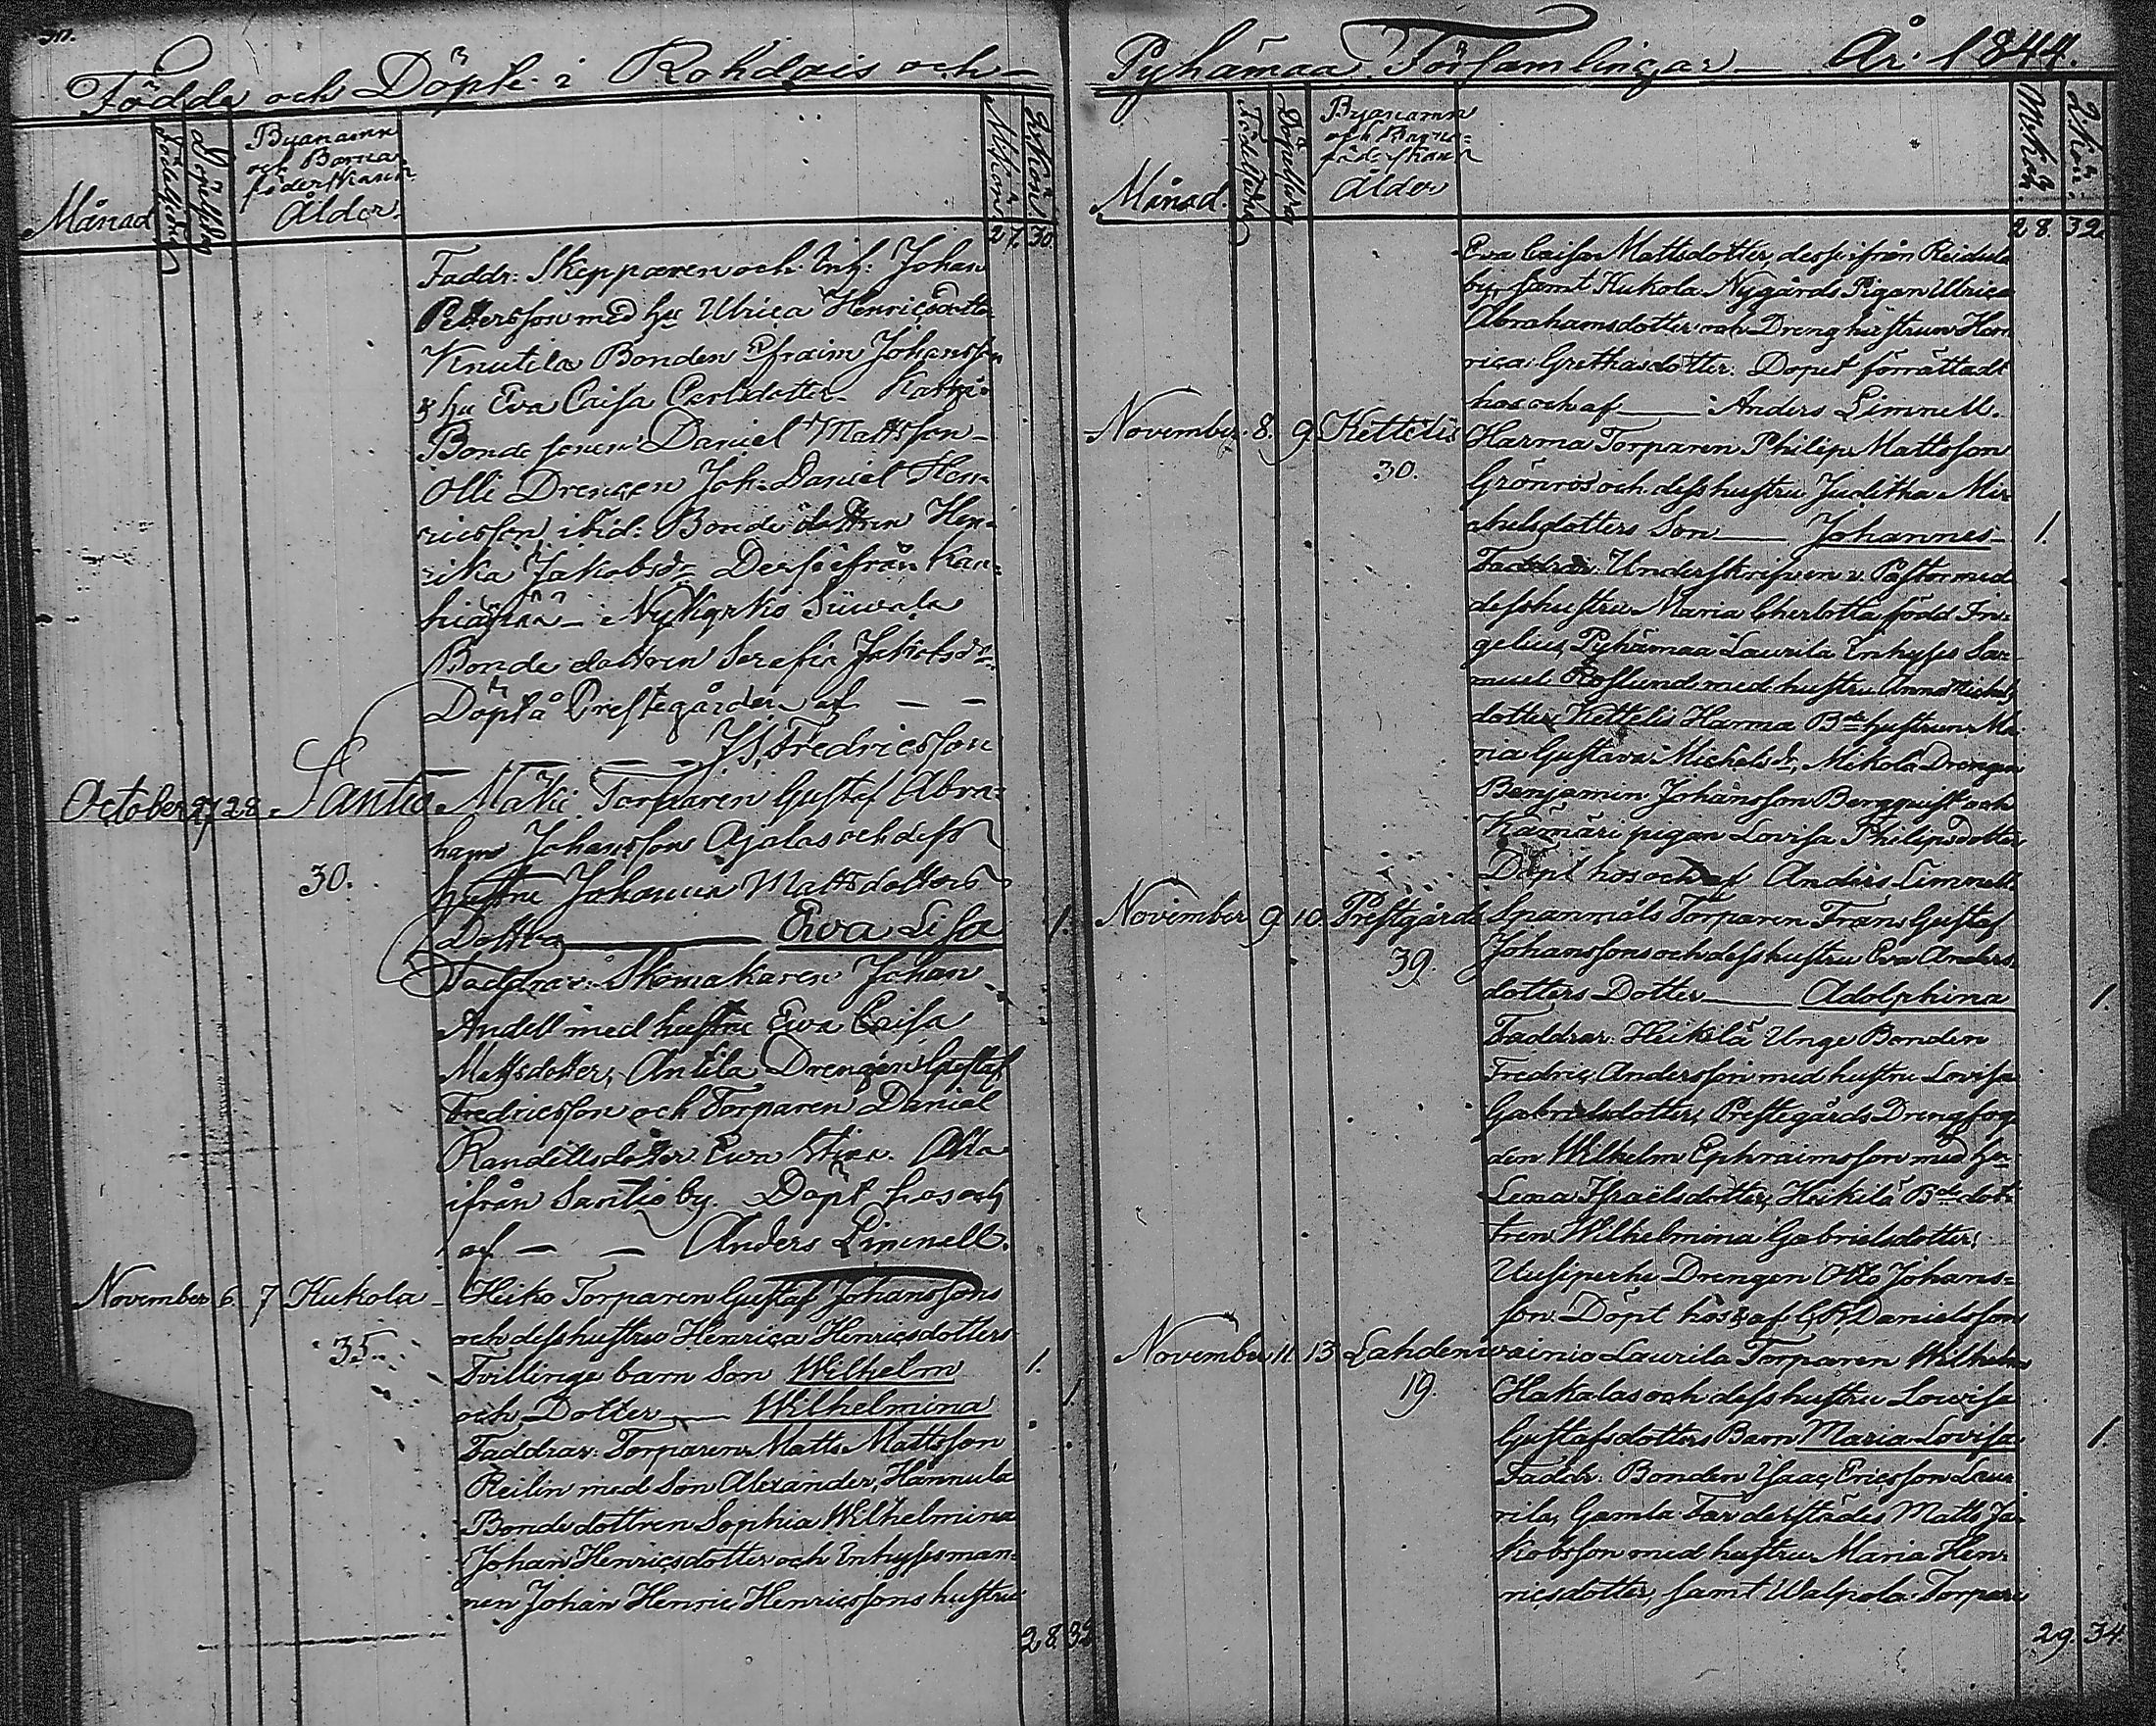 Födde och Döpte i Rohdais och
Månad
Födelsedag
Döpelsedag
Byanamn
och Barna
föderskans
Ålder.
M.Kön
Q.Kön
27. 30.
Faddr: Skepparen och Inh: Johan
Pettersson med hu Ulrica Henricsdotter
Knutila Bonden Efraim Johansson
& hu Eva Caisa Carlsdotter
Bonde sonen Daniel Mattsson
Olli Drengen Joh: Daniel Hen-
ricsson, ibid. Bonde dottren Hen-
rika Jakobsdr Desse från Kan-
hiajää – Nykyrko
Bonde dottren Serafia Jakobsdr
Döpt å Prestegården af — —
— — — J.S. Fredricsson
October 27 28 Santio Mäki Torparen Gustaf Abra-
ham Johansson Ojalas och dess
30.
hustru Johanna Mattsdotters
Dotter — Eva Lisa 1.
Faddrar: Skomakaren Johan
Andell med hustru Eva Caisa
Mattsdotter, Antila Drengen Gustaf
Fredricsson och Torparen Daniel
Randellsdotter Eva Stina. Alla
ifrån Santio by. Döpt hos och
af — — Anders Limnell.
November 6. 7 Kukola Heiko Torparen Gustaf Johanssons
35.
och dess hustru Henrica Henricsdotters
Tvillinge barn Son Wilhelm 1.
och Dotter — Wilhelmina 1
Faddrar: Torparen Matts Mattsson
Reilin med Son Alexander, Hannula
Bonde dottren Sophia Wilhelmina
Johan Henricsdotter och Inhysesman-
nen Johan Henric Henricssons hustru
28. 32
Pyhämaa Församlingar År 1844.
Månad.
Födelsedag
Döpelsedag
Byanamn
och Barna-
föderskans
Ålder
M.Kön
Q.Kön
28. 32.
Eva Caisa Mattsdotter, desse ifrån Reidula
by, samt Kukola Nygårds Pigan Ulrica
Abrahamsdotter och Dreng hustrun Hen-
rica Grethasdotter. Dopet förrättadt
hos och af — Anders Limnell.
November. 8. 9. Kettelis Harma Torparen Philip Mattsson
30.
Grönros och dess hustru Juditha Mic
chelsdotters Son — Johannes 1.
Faddrar: Underskrifven v. Pastor med
dess hustru Maria Charlotta född In-
gelius, Pyhämaa Laurila Inhyses Sa-
muel Roslund med hustru Anna Michels
dotter Kettelis Harma Bde hustrun Ma
ria Gustava Michelsdr, Mikola Drengen
Benjamin Johansson Bergquist och
Kämäri pigan Lovisa Philipsdotter
Döpt hos och af Anders Limnell
November 9. 10. Prestgårds Spanmåls Torparen Frans Gustaf
39.
Johanssons och dess hustru Eva Anders
dotters Dotter — Adolphina 1
Faddrar: Heikilä Unge Bonden
Fredric Andersson med hustru Lovisa
Gabrielsdotter, Prestegårds Drengfog
den Wilhelm Ephraimsson med hu
Lena Israelsdotter, Heikilä Bde dot
tren Wilhelmina Gabrielsdotter:
Uusiperhe Drengen Otto Johans-
son. Döpt hos & af G.W. Danielsson
November 11. 13 Lahdenvainio Laurila Torparen Wilhelm
19.
Hakalas och dess hustru Lowisa
Gustafsdotters Barn Maria Lovisa 1.
Faddr: Bonden Isaac Ericsson Lau
rila, Gamla Far derstädes Matts Ja-
kobsson med hustru Maria Hen-
ricsdotter, samt Walpola Torpare
29. 34.